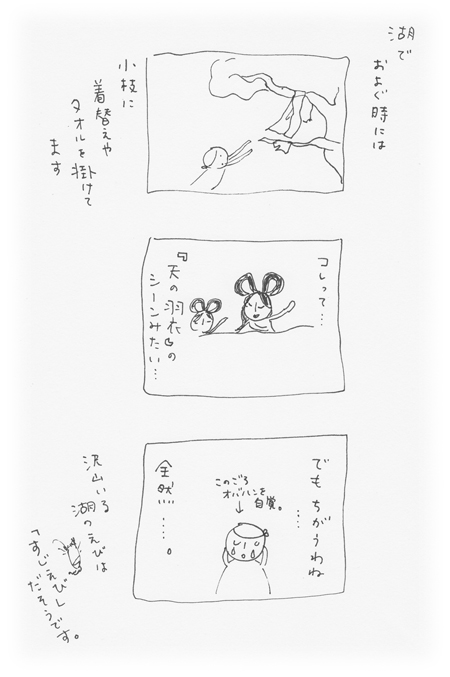 湖で
およぐ時には
小枝に
着替えや
タオルを掛けて
ます
コレって…
『天の羽衣』の
シーンみたい…
でもちがうわね
……
このごろ
オバハンを
自覚。
全然……。
沢山いる
湖のえびは
「すじえび」
だそうです。